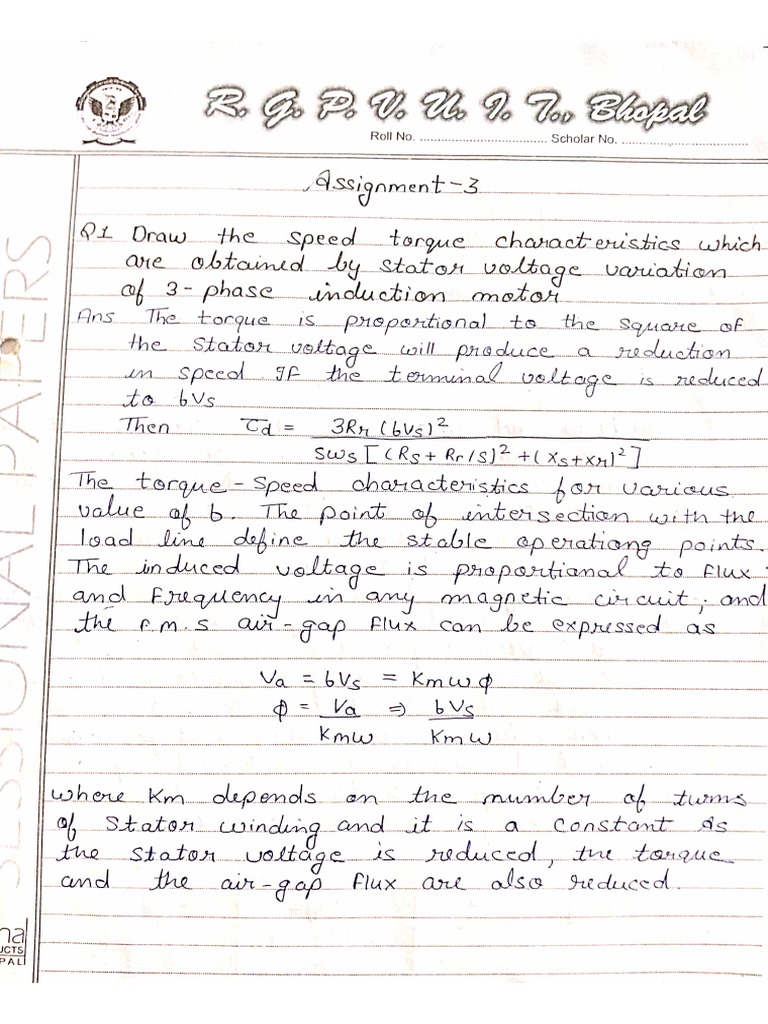 R. G. P. V. U. I. T., Bhopal
Roll No. .................................. Scholar No. ..................................
Assignment-3
Q1 Draw the speed torque characteristics which
are obtained by stator voltage variation
of 3-phase induction motor
Ans The torque is proportional to the square of
the stator voltage will produce a reduction
in speed If the terminal voltage is reduced
to bVs
Then τd = 3Rr (bVs)² / sws [(Rs + Rr/s)² + (Xs+Xr)²]
The torque-speed characteristics for various
value of b. The point of intersection with the
load line define the stable operationg points.
The induced voltage is proportional to flux
and frequency in any magnetic circuit, and
the r.m.s air-gap flux can be expressed as
Va = bVs = Kmω φ
φ = Va / Kmω ⇒ bVs / Kmω
where Km depends on the number of turns
of stator winding and it is a constant As
the stator voltage is reduced, the torque
and the air-gap flux are also reduced.
SESSIONAL PAPERS
na
UCTS
PAL